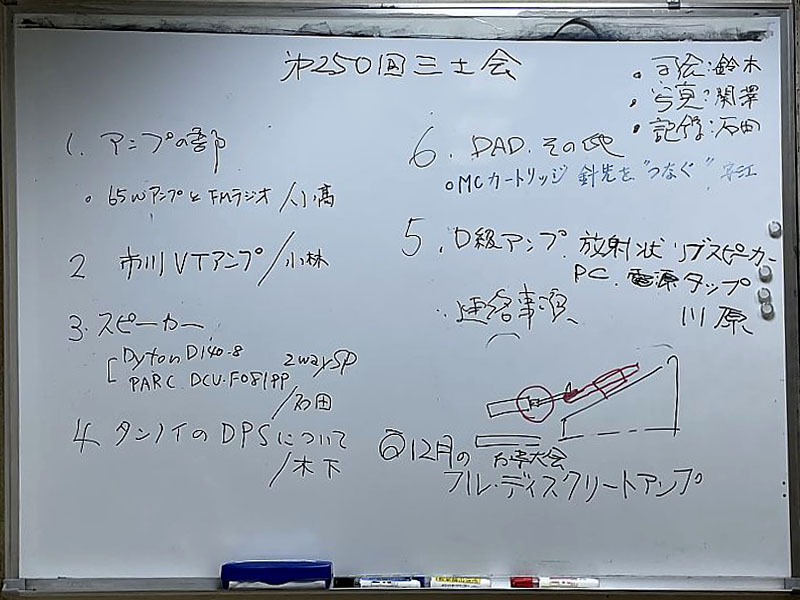 第250回三土会
・司会:鈴木
・写真:関澤
・記録:石田
1. アンプの部
・65WアンプとFMラジオ/小高
2 市川VTアンプ/小林
3. スピーカー
Dyton D140-8 2waySP
PARC. DCU-F081PP
/石田
4. タンノイのDPSについて
/木下
6. DAD. その他
○MCカートリッジ 針先を"つなぐ"
5. D級アンプ. 放射状リブスピーカー
PC. 電源タップ
川原
連絡事項
◎12月の 大会
フル・ディスクリートアンプ